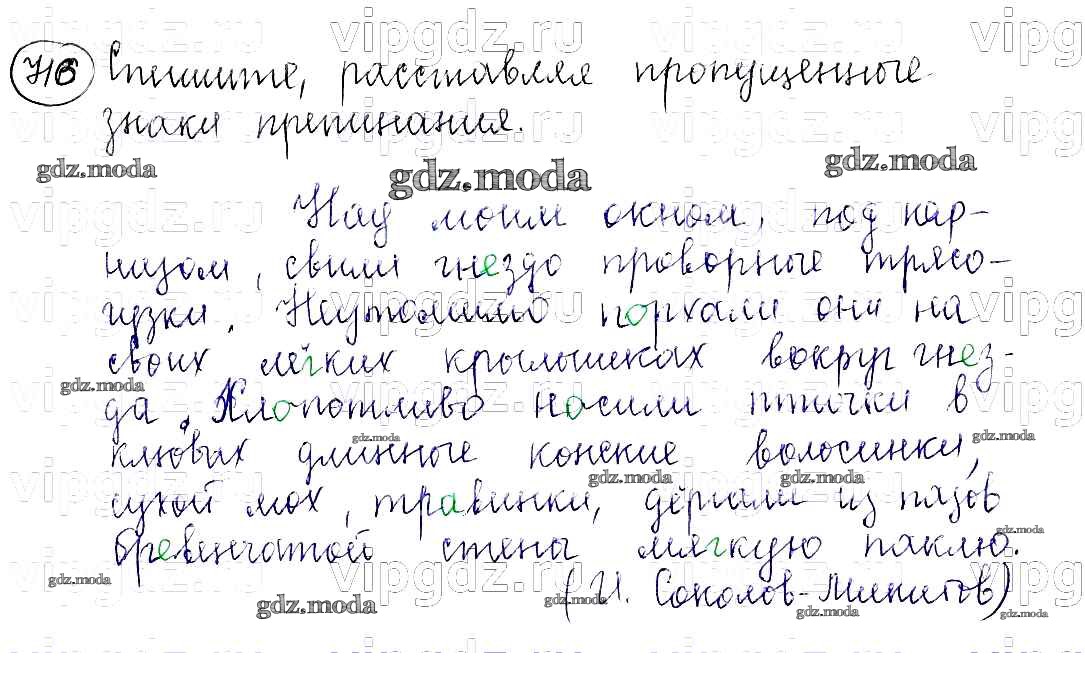 716 Спишите, расставляя пропущенные
знаки препинания.
Над моим окном, под кар-
низом, свили гнездо проворные трясо-
гузки. Неутомимо порхали они на
своих лёгких крылышках вокруг гнез-
да. Хлопотливо носили птички в
клювах длинные конские волосинки,
сухой мох, травинки, дёргали из пазов
бревенчатой стены мягкую паклю.
(И. Соколов-Микитов)
vipgdz.ru
gdz.moda